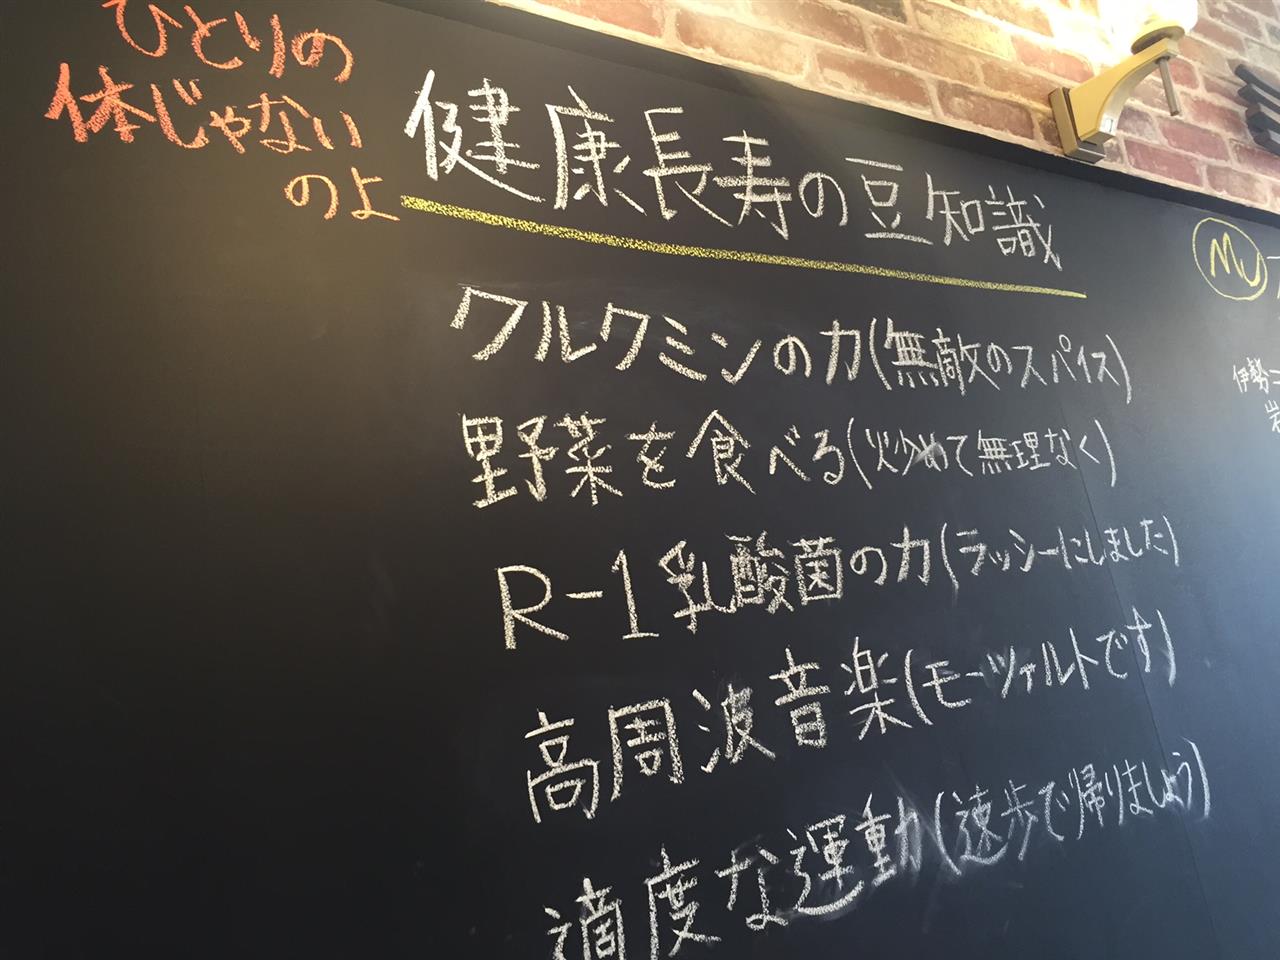 ひとりの
体じゃない
のよ
健康長寿の豆知識
クルクミンの力(無敵のスパイス)
野菜を食べる(炒めて無理なく)
R-1乳酸菌の力(ラッシーにしました)
高周波音楽(モーツァルトです)
適度な運動(速歩で帰りましょう)
Mu
伊勢
岩